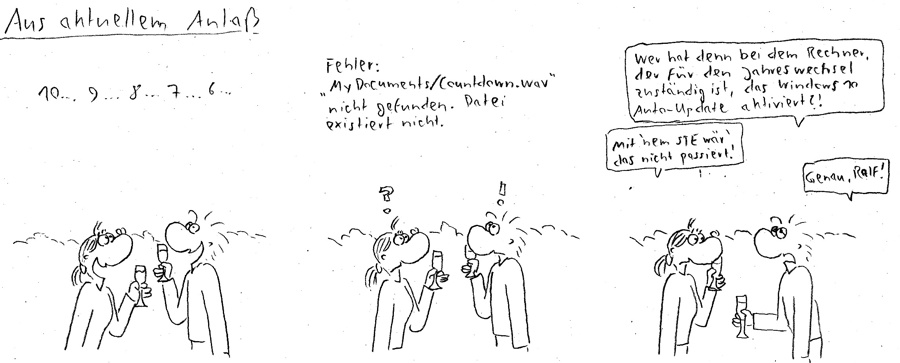 Aus aktuellem Anlaß
10... 9... 8... 7... 6...
Fehler:
"MyDocuments/Countdown.wav"
nicht gefunden. Datei
existiert nicht.
?
!
Wer hat denn bei dem Rechner,
der für den Jahreswechsel
zuständig ist, das Windows 10
Auto-Update aktiviert?!
Mit 'nem STE wär'
das nicht passiert!
Genau, Ralf!